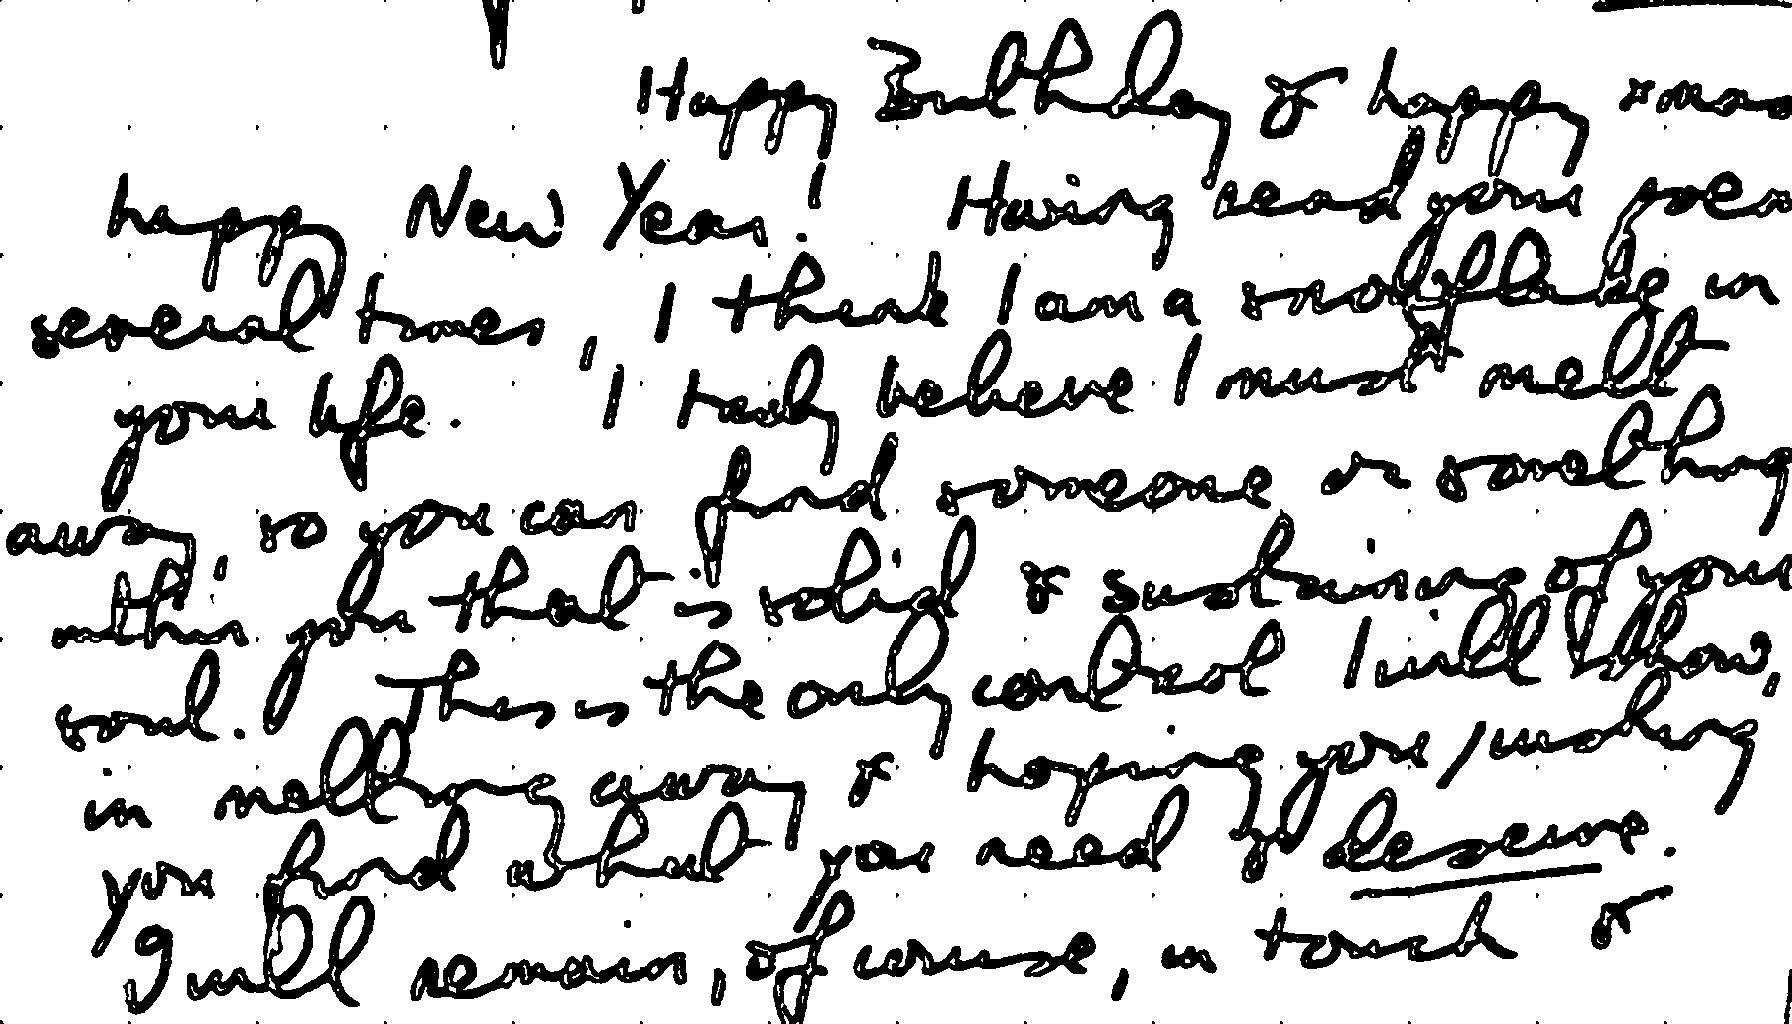 Happy Birthday & happy xmas
happy New Year! Having read your poem
several times, I think I am a snowflake in
your life. I truly believe I must melt
away, so you can find someone or something
within you that is solid & sustaining of your
soul. This is the only control I will show,
in melting away & hoping you / wishing
you find what you need & deserve.
I will remain, of course, in touch &